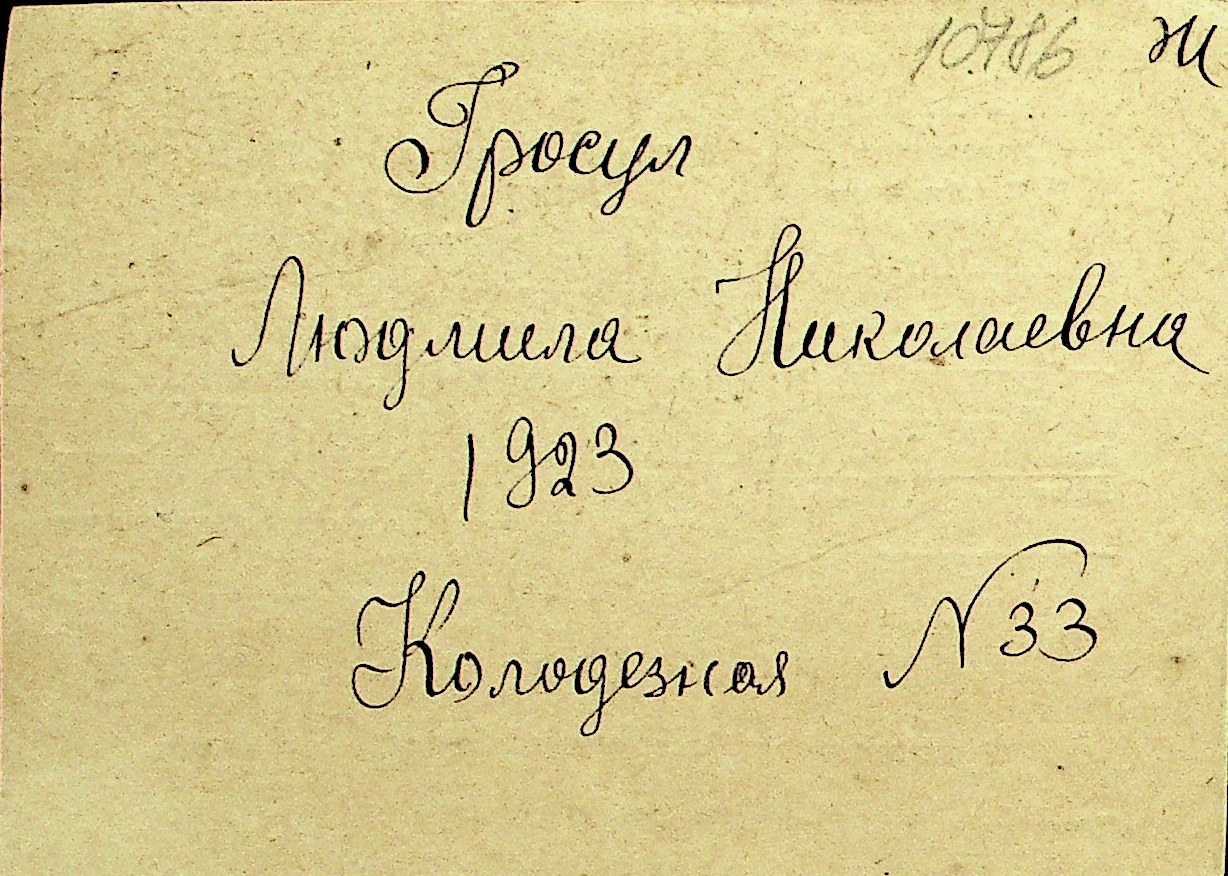 10786 Ж
Гросул
Людмила Николаевна
1923
Колодезная N 33